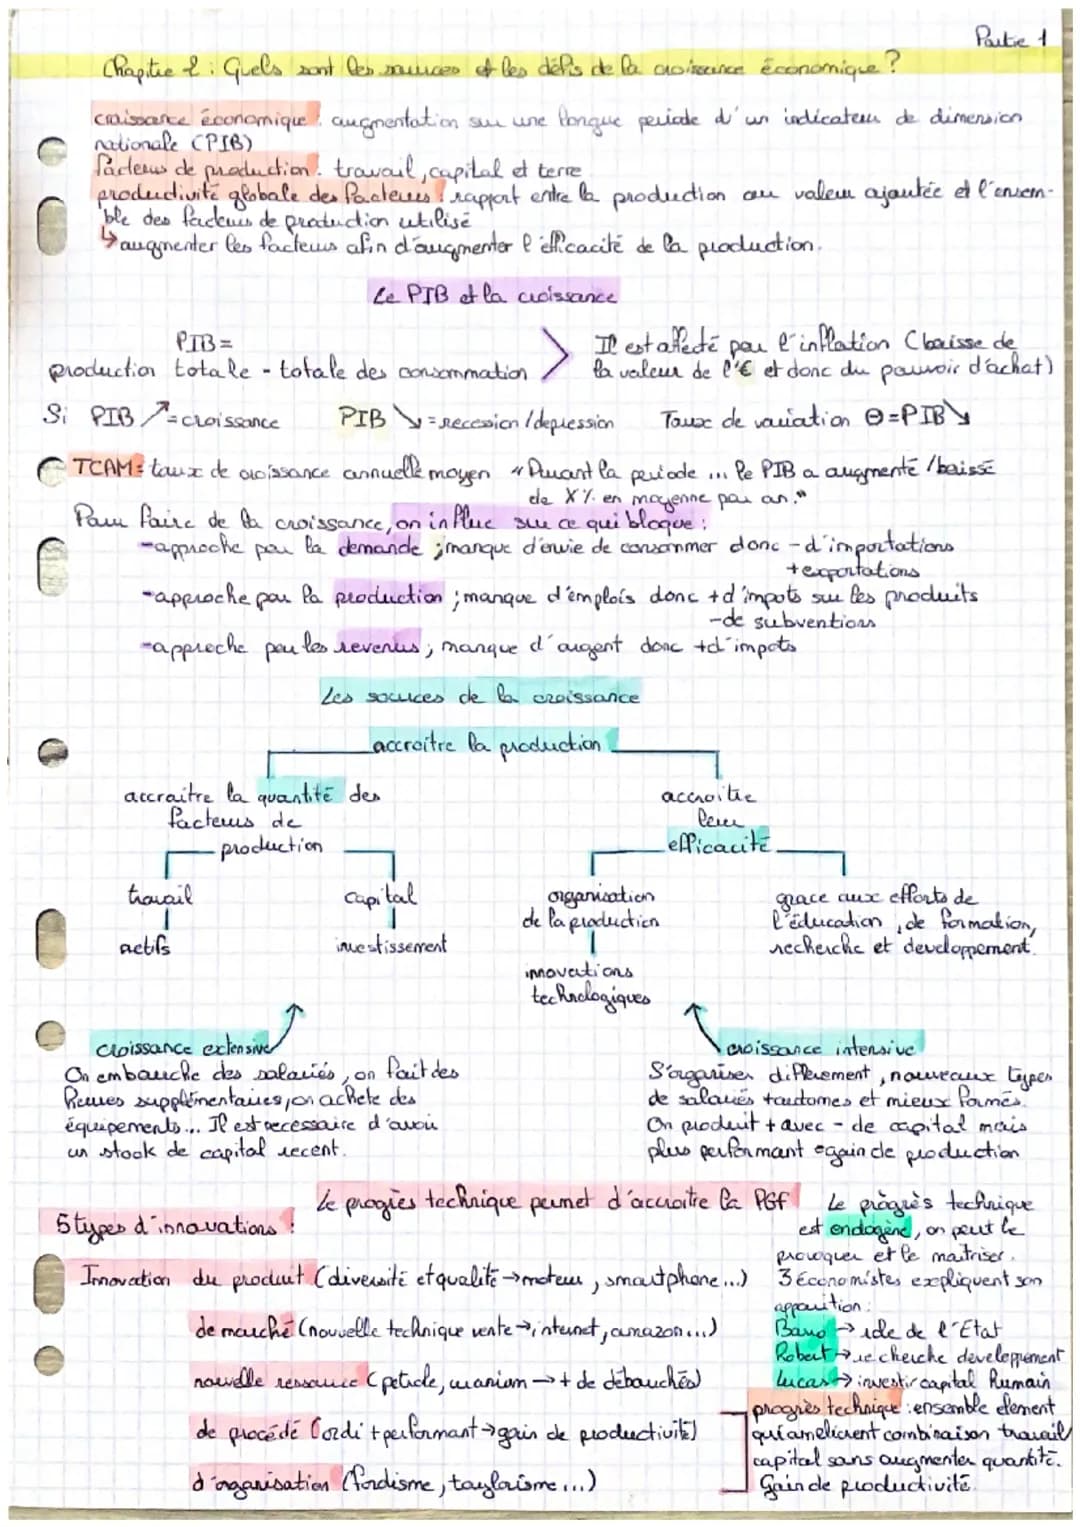 Partie 1
Chapitre 2 : Quels sont les sources et les défis de la croissance économique ?
croissance économique : augmentation sur une longue periode d'un indicateur de dimension
nationale (PIB)
facteurs de production : travail, capital et terre
productivité globale des facteurs : rapport entre la production ou valeur ajoutée et l'ensem-
ble des facteurs de production utilisé
↳ augmenter les facteurs afin d'augmenter l'efficacité de la production.
Le PIB et la croissance
PIB =
production totale - totale des consommation
> Il est affecté par l'inflation (baisse de
la valeur de l'€ et donc du pouvoir d'achat)
Si PIB ↗ = croissance PIB ↘ = recession / depression Taux de variation ⊖ = PIB ↘
TCAM : taux de croissance annuelle moyen "Durant la periode ... le PIB a augmenté / baissé
de X % en moyenne par an."
Pour faire de la croissance, on influe sur ce qui bloque :
- approche par la demande ; manque d'envie de consommer donc - d'importations
+ exportations
- approche par la production ; manque d'emplois donc + d'impots sur les produits
- de subventions
- approche par les revenus ; manque d'argent donc + d'impots
Les sources de la croissance
accroitre la production
accraitre la quantité des
facteurs de
production
accroitre
leur
efficacité
travail
actifs
capital
investissement
organisation
de la production
innovations
technologiques
grace aux efforts de
l'éducation, de formation,
recherche et developpement.
croissance extensive
On embauche des salariés, on fait des
heures supplémentaires, on achete des
équipements... Il est necessaire d'avoir
un stock de capital recent.
croissance intensive
S'organiser differement, nouveaux types
de salariés + autonomes et mieux formés.
On produit + avec - de capital mais
plus performant = gain de production
Le progrès technique permet d'accroitre la PGF
5 types d'innovations :
Innovation du produit (diversité et qualité → moteur, smartphone...)
de marché (nouvelle technique vente →, internet, amazon...)
nouvelle ressource (petrole, uranium → + de débouchés)
de procédé (ordi + performant → gain de productivité)
d'organisation (fordisme, taylorisme...)
Le progrès technique
est endogène, on peut le
provoquer et le maitriser.
3 économistes expliquent son
apparition :
Barro → role de l'Etat
Robert → recherche developpement
Lucas → investir capital humain
progrès technique : ensemble element
qui ameliorent combinaison travail/
capital sans augmenter quantité.
Gain de productivité.